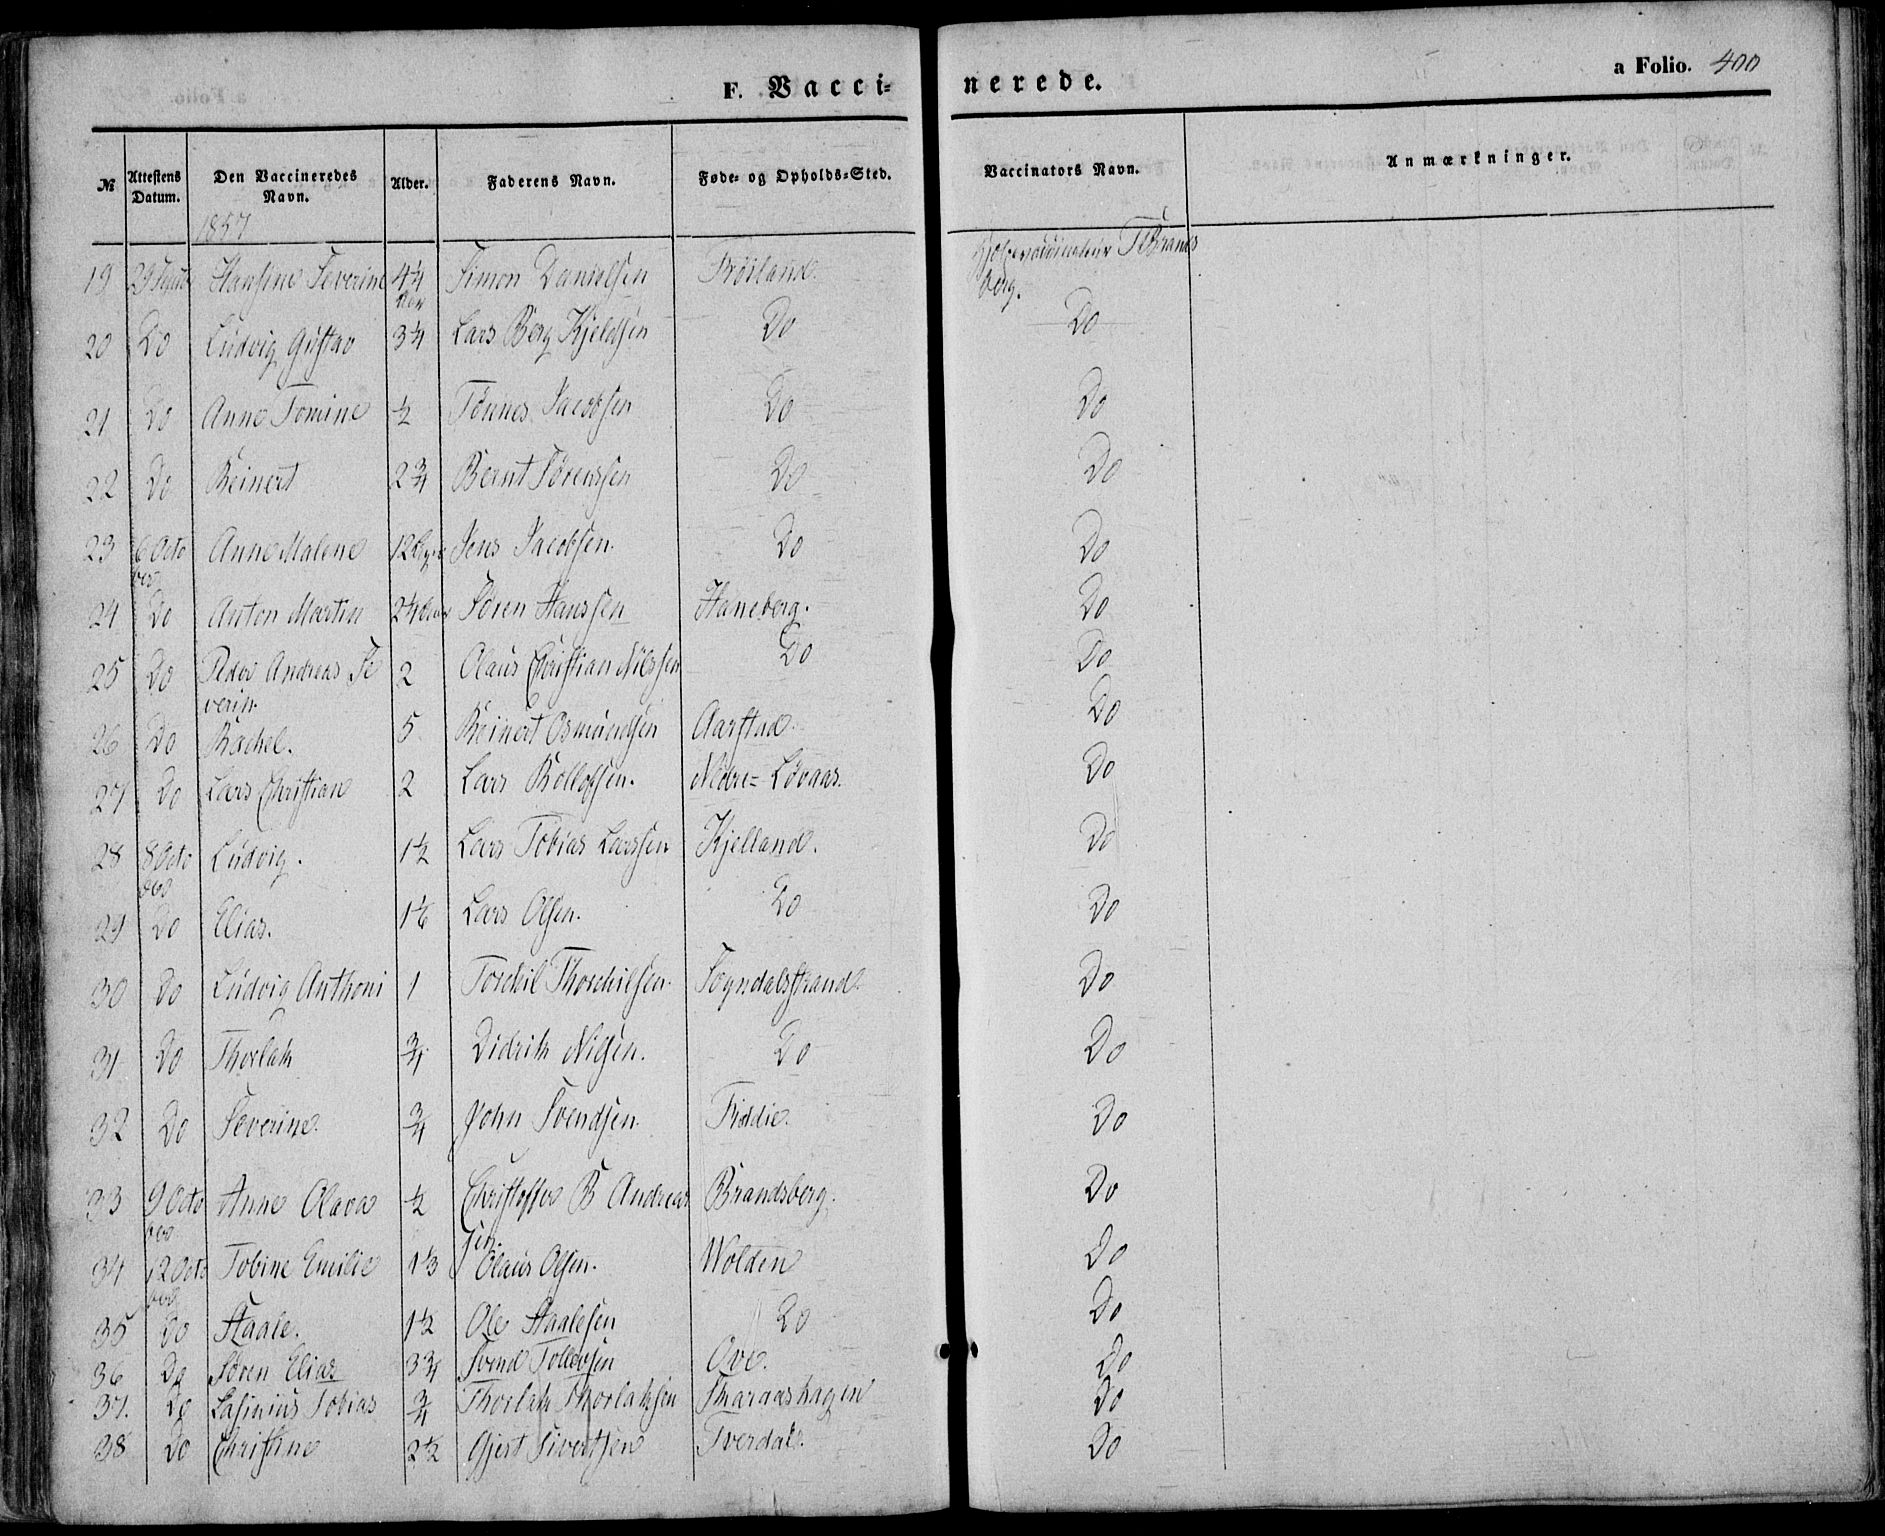 a Folio. 400
F. Vacci-nerede.
№ Attestens Datum. Den Vaccineredes Navn. Alder. Faderens Navn. Føde- og Opholds-Sted. Vaccinators Navn. Anmærkninger.
1857
19 29 Septbr Hansine Severine 4¼ Aar Simon Danielsen Frøiland. Hjelpevaccinateur T Brands
berg.
20 Do Ludvig Gustav 3¼ Lars Berg Kjeldsen Do Do
21 Do Anne Tomine ½ Tønnes Jacobsen Do Do
22 Do Reinert 2¾ Bernt Sørenssen Do Do
23 6 Octo Anne Malene 12 Jens Jacobsen. Do Do
ber
24 Do Anton Martin 2¼ Aar Søren Hanssen Haneberg. Do
25 Do Peder Andreas Se 2 Olaus Christian Nilssen Do Do
verin.
26 Do Rachel. 5 Reinert Osmundsen Aarstad. Do
27 Do Lars Christian 2 Lars Rollofsen. Nedre-Løvaas. Do
28 8 Octo Ludvig. 1½ Lars Tobias Larssen Kjelland. Do
ber
29 Do Elias. 1⅙ Lars Olsen. Do Do
30 Do Ludvig Anthoni 1 Torchil Thorchilsen. Sogndalsstrand. Do
31 Do Thorlak ¾ Didrik Nilsen. Do Do
32 Do Severine. ¾ John Svendsen. Do
33 9 Octo Anne Olava ½ Christoffer B Andreas Brandsberg. Do
ber sen.
34 12 Octo Tobine Emilie 1⅓ Olaus Olsen. Wolden Do
ber
35 Do Staale. 1½ Ole Staalesen Do Do
36 Do Søren Elias 3¾ Svend Tollevsen Ove. Do
37. Do Tobias ¾ Thorlak Thorlaksen Do
38 Do Christine 2½ Gjert Sivertsen Tverdal. Do